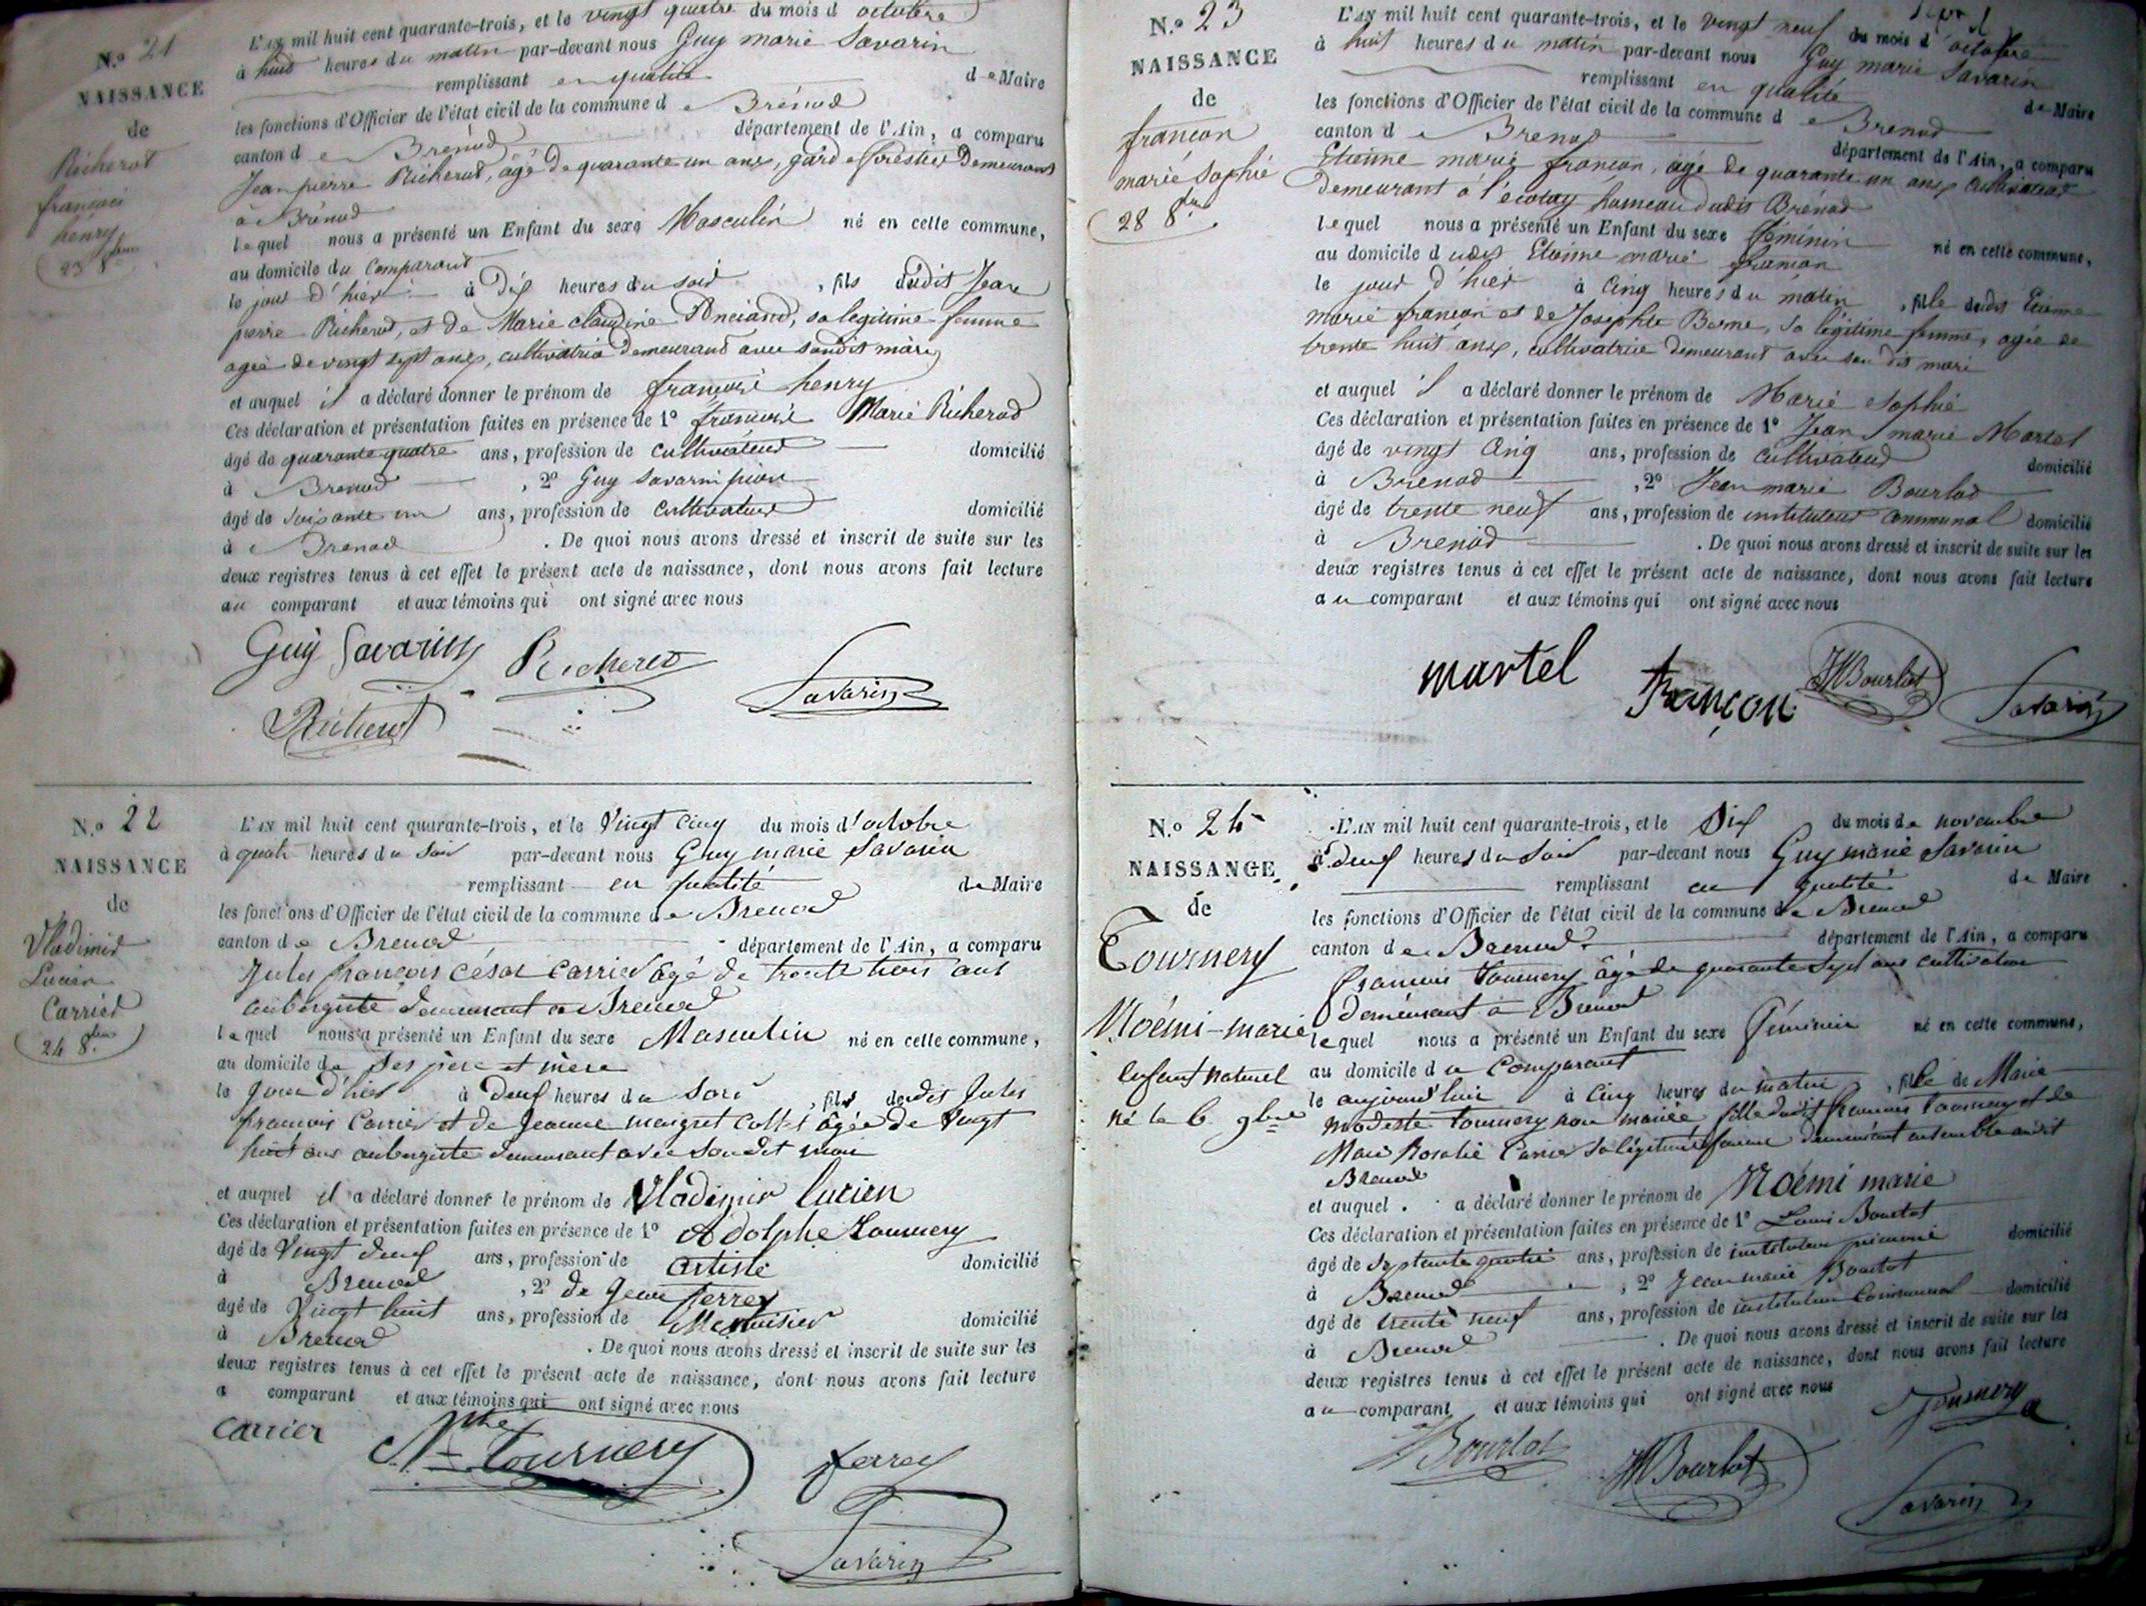 N.o 21
NAISSANCE
de
Richerot
françois
henry
23 8bre
L'AN mil huit cent quarante-trois, et le vingt quatre du mois d octobre
à huit heures du matin par-devant nous Guy marie Savarin
remplissant en qualité de Maire
les fonctions d'Officier de l'état civil de la commune de Brénod
canton de Brénod département de l'Ain, a comparu
Jean pierre Richerot, âgé de quarante un ans, garde forestier demeurant
à Brénod
lequel nous a présenté un Enfant du sexe Masculin né en cette commune,
au domicile du Comparant
le jour d'hier à dix heures du soir, fils dudit Jean
pierre Richerot, et de Marie claudine, sa legitime femme
agée de vingt sept ans, cultivatrice demeurant avec sondit mari
et auquel il a déclaré donner le prénom de françois henry
Ces déclaration et présentation faites en présence de 1o françois Marie Richerod
âgé de quarante quatre ans, profession de cultivateur domicilié
à Brenod, 2o Guy Savarin pion
âgé de soixante un ans, profession de cultivateur domicilié
à Brenod. De quoi nous avons dressé et inscrit de suite sur les
deux registres tenus à cet effet le présent acte de naissance, dont nous avons fait lecture
au comparant et aux témoins qui ont signé avec nous
Guy Savarin Richerot
Savarin
Richerot
N.o 22
NAISSANCE
de
Vladimir
Lucien
Carrier
24 8bre
L'AN mil huit cent quarante-trois, et le Vingt Cinq du mois d'octobre
à quatre heures du soir par-devant nous Guy marie Savarin
remplissant en qualité de Maire
les fonctions d'Officier de l'état civil de la commune de Brenod
canton de Brenod département de l'Ain, a comparu
Jules françois César Carrier âgé de trente trois ans
aubergiste demeurant a Brenod
lequel nous a présenté un Enfant du sexe Masculin né en cette commune,
au domicile de ses père et mère
le jour d'hier à deux heures du soir, fils dudit Jules
françois Carrier et de Jeanne margret Collet âgée de Vingt
huit ans aubergiste demeurant avec son dit mari
et auquel il a déclaré donner le prénom de Vladimir Lucien
Ces déclaration et présentation faites en présence de 1o Adolphe Tournery
âgé de Vingt deux ans, profession de artiste domicilié
à Brenod, 2o de Jean ferrey
âgé de Vingt huit ans, profession de Menuisier domicilié
à Brenod. De quoi nous avons dressé et inscrit de suite sur les
deux registres tenus à cet effet le présent acte de naissance, dont nous avons fait lecture
a comparant et aux témoins qui ont signé avec nous
Carrier
Aphe Tournery ferrey
Savarin
N.o 23
NAISSANCE
de
françon
marie Sophie
28 8bre
L'AN mil huit cent quarante-trois, et le vingt neuf du mois d'octobre
à huit heures du matin par-devant nous Guy marie Savarin
remplissant en qualité de Maire
les fonctions d'Officier de l'état civil de la commune de Brenod
canton de Brenod département de l'Ain, a comparu
Etienne marie françon, agé de quarante un ans cultivateur
demeurant à l'écotay hameau dudit Brénod
lequel nous a présenté un Enfant du sexe féminin né en cette commune,
au domicile dudit Etienne marie françon
le jour d'hier à Cinq heures du matin, fille dudit Etienne
marie françon et de Josephte Berne, sa légitime femme, agée de
trente huit ans, cultivatrice demeurant avec son dit mari
et auquel il a déclaré donner le prénom de Marie Sophie
Ces déclaration et présentation faites en présence de 1o Jean marie Martel
âgé de vingt Cinq ans, profession de cultivateur domicilié
à Brenod, 2o Jean marie Bourlod
âgé de trente neuf ans, profession de instituteur communal domicilié
à Brenod. De quoi nous avons dressé et inscrit de suite sur les
deux registres tenus à cet effet le présent acte de naissance, dont nous avons fait lecture
au comparant et aux témoins qui ont signé avec nous
martel françon JMBourlot Savarin
N.o 24
NAISSANCE
de
Tournery
Noémi-marie
Enfant naturel
né le 6 9bre
L'AN mil huit cent quarante-trois, et le Six du mois de novembre
à deux heures du soir par-devant nous Guy marie Savarin
remplissant en qualité de Maire
les fonctions d'Officier de l'état civil de la commune de Brenod
canton de Brenod département de l'Ain, a comparu
francois Tournery âgé de quarante sept ans cultivateur
demeurant à Brenod
lequel nous a présenté un Enfant du sexe féminin né en cette commune,
au domicile du Comparant
le aujourd'hui à Cinq heures du matin, fille de Marie
Modeste Tournery non mariée fille dudit francois Tournery et de
Marie Rosalie Carrier sa légitime femme demeurant ensemble audit
Brenod
et auquel a déclaré donner le prénom de Noémi marie
Ces déclaration et présentation faites en présence de 1o Louis Bourlot
âgé de Septante quatre ans, profession de instituteur primaire domicilié
à Brenod, 2o Jean marie Bourlot
âgé de trente neuf ans, profession de instituteur Communal domicilié
à Brenod. De quoi nous avons dressé et inscrit de suite sur les
deux registres tenus à cet effet le présent acte de naissance, dont nous avons fait lecture
au comparant et aux témoins qui ont signé avec nous
Tournery
Bourlot JMBourlot
Savarin